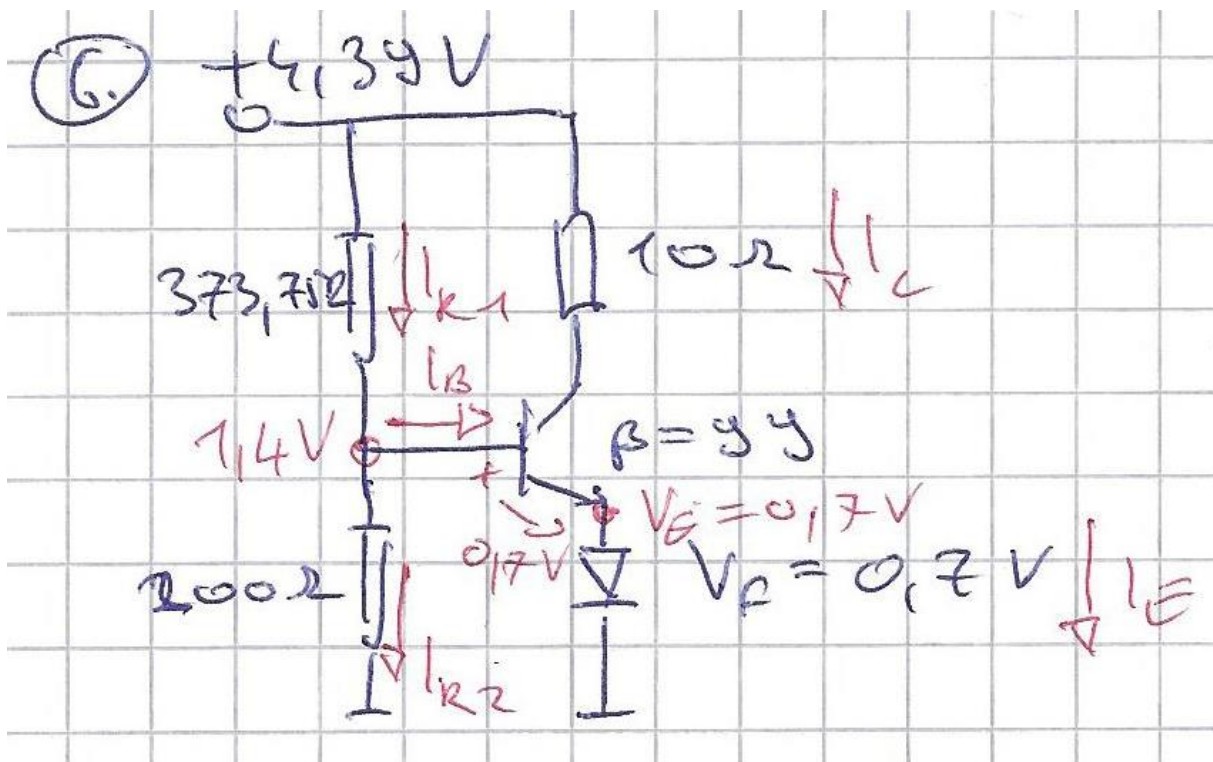 6. +4,39V
373,75Ω
I_R1
10Ω
I_C
I_B
1,4V
β=99
+
0,7V
V_E=0,7V
V_F=0,7V
I_E
200Ω
I_R2